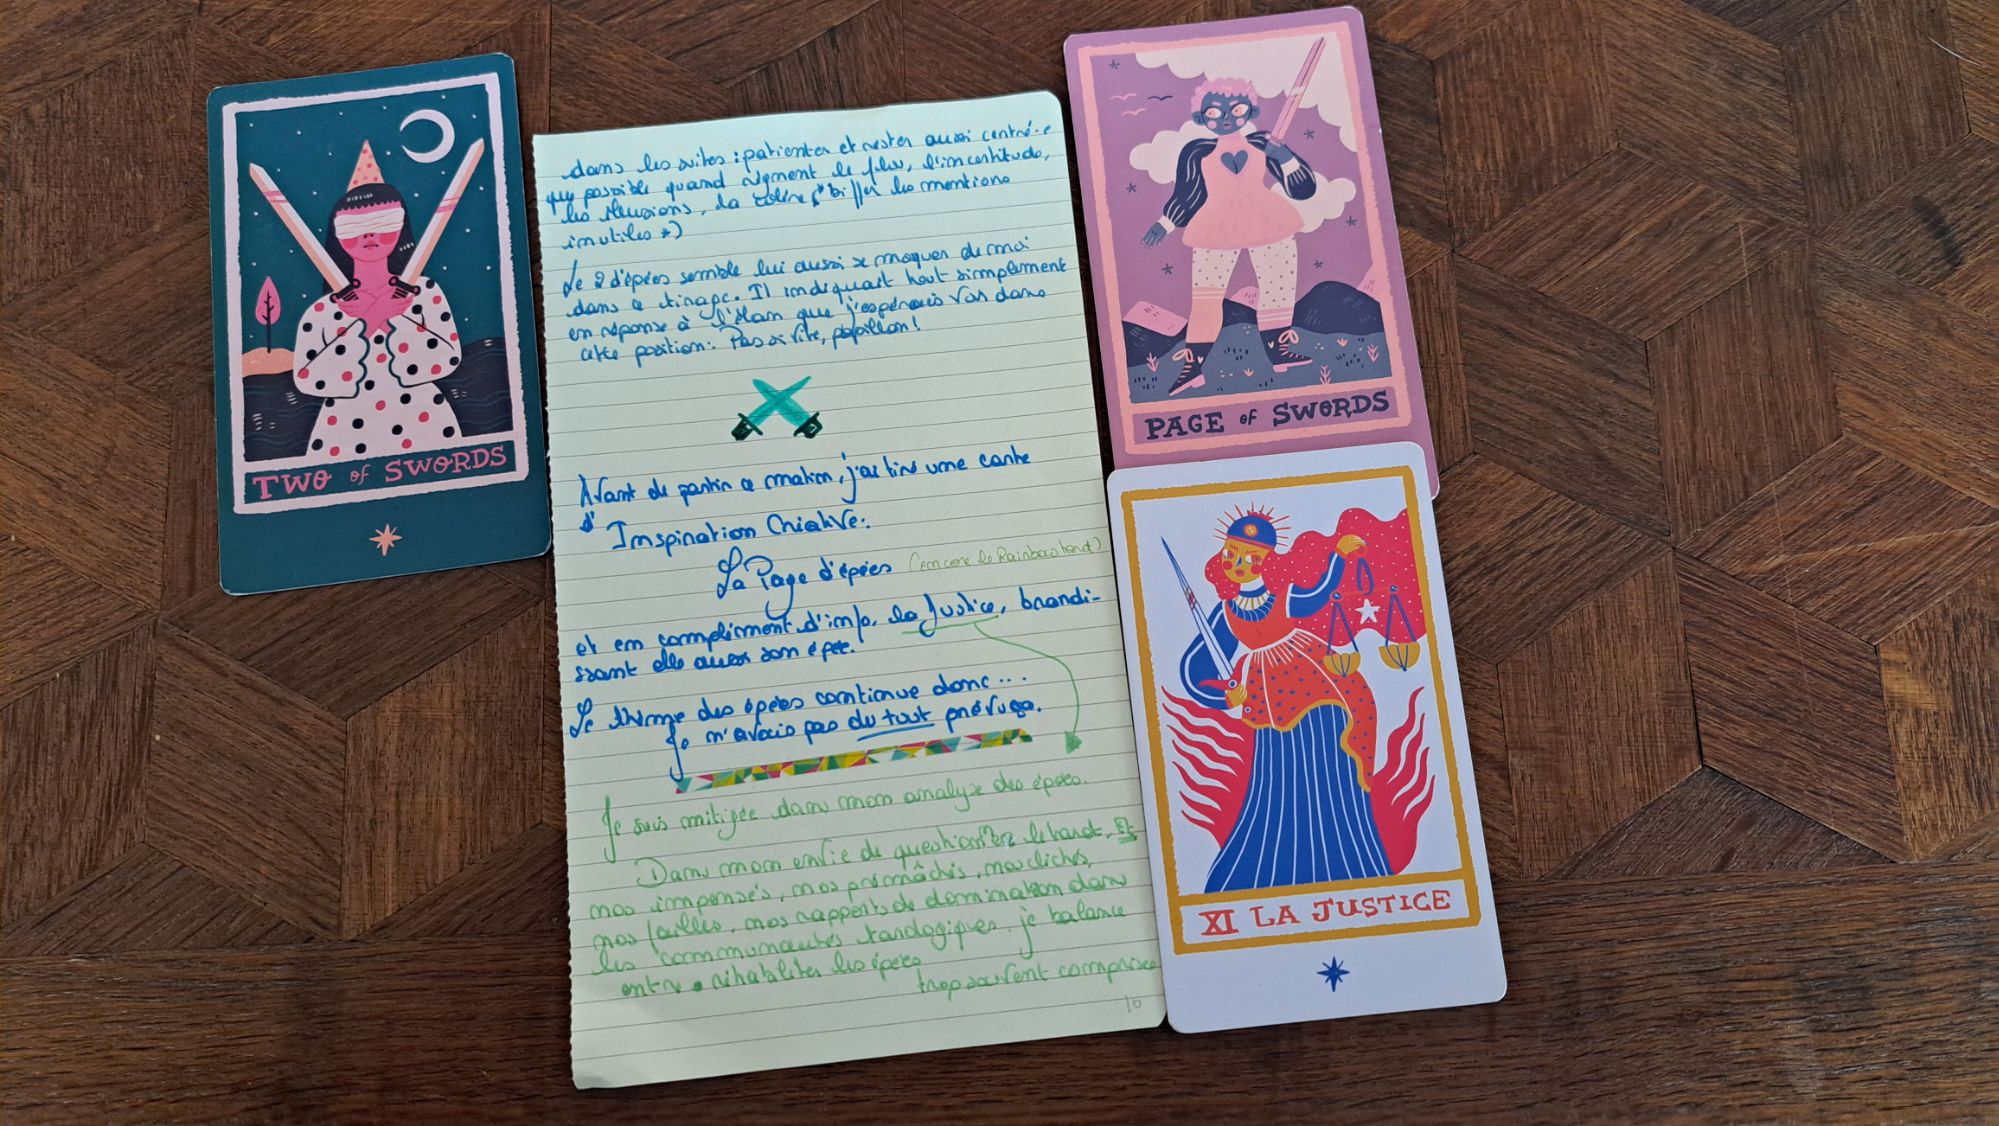 TWO of SWORDS
dans les suites : patienter et rester aussi centré·e
que possible quand règnent le flou, l'incertitude,
les illusions, la colère (* biffer les mentions
inutiles *)
Le 2 d'épées semble lui aussi se moquer de moi
dans ce tirage. Il indiquait tout simplement
en réponse à l'élan que j'espérais voir dans
cette position : Pas si vite, papillon !
Avant de partir ce matin, j'ai tiré une carte
d'Inspiration Créative :
La Page d'épées (encore le Rainbow tarot)
et en complément d'info, la Justice, brandi-
ssant elle aussi son épée.
Le thème des épées continue donc...
Je n'avais pas du tout prévu ça.
Je suis mitigée dans mon analyse des épées.
Dans mon envie de questionner le tarot, et
nos impensés, nos prémâchés, nos clichés,
nos failles, nos rapports de domination dans
les communautés tarologiques, je balance
entre réhabiliter les épées
trop souvent comprises
16
PAGE of SWORDS
XI LA JUSTICE